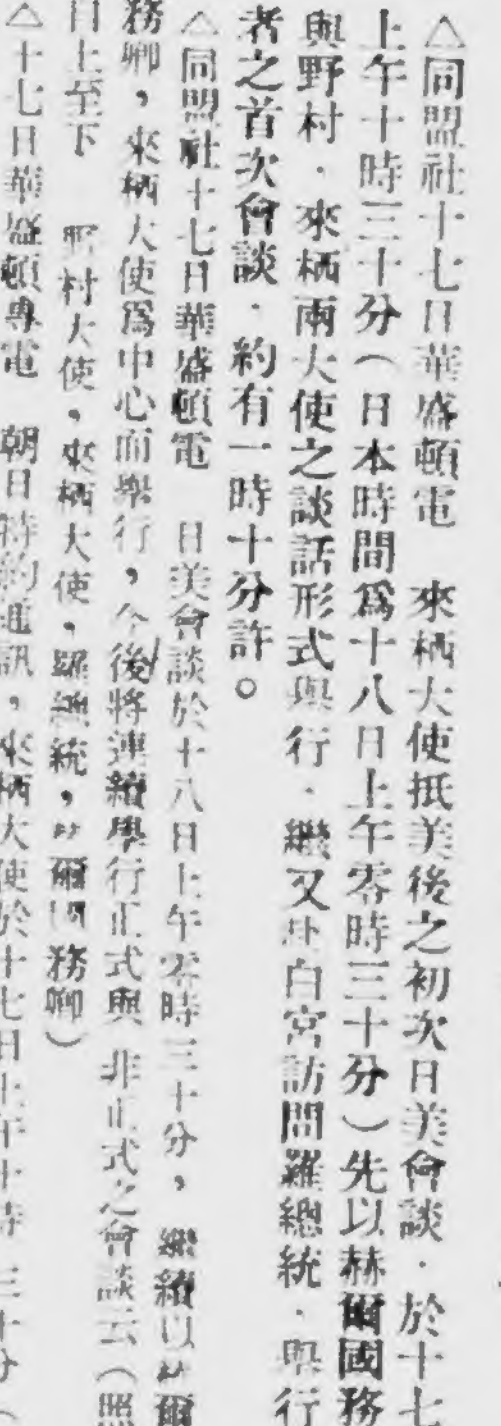 △同盟社十七日華盛頓電　來栖大使抵美後之初次日美會談．於十七
上午十時三十分（日本時間爲十八日上午零時三十分）先以赫爾國務
與野村．來栖兩大使之談話形式舉行．繼又赴白宮訪問羅總統．舉行
者之首次會談．約有一時十分許。
△同盟社十七日華盛頓電　日美會談於十八日上午零時三十分，繼續以赫爾
務卿，來栖大使爲中心而舉行，今後將連續舉行正式與非正式之會談云（照
自上至下　野村大使，來栖大使，羅總統，赫爾國務卿）
△十七日華盛頓專電　朝日特約通訊，來栖大使於十七日上午十時三十分（